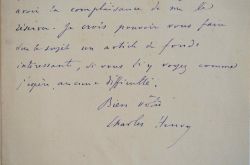 avoir la complaisance de me le
dire. Je crois pouvoir vous faire
sur le sujet un article de fonds
intéressant, si vous n'y voyez comme
j'espère, aucune difficulté.
Bien vôtre
Charles Henry